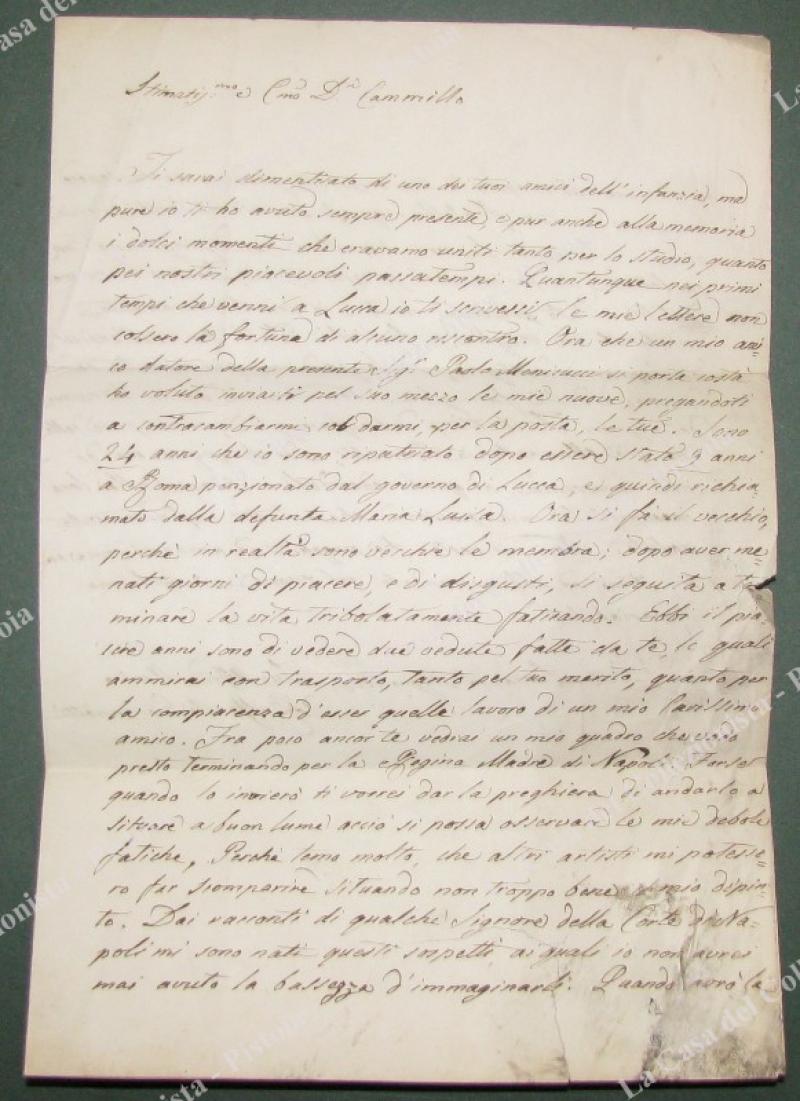 Stimatiss.mo e C.mo D.n Cammillo
Ti sarai dimenticato di uno dei tuoi amici dell'infanzia, ma
pure io ti ho avuto sempre presente, e pur anche alla memoria
i dolci momenti che eravamo uniti tanto per lo studio, quanto
pei nostri piacevoli passatempi. Quantunque nei primi
tempi che venni a Lucca io ti scrivessi, le mie lettere non
colsero la fortuna di alcuno riscontro. Ora che un mio ami=
co datore della presente Sig.r Paolo Menicucci si porta costà
ho voluto inviarti pel suo mezzo le mie nuove, pregandoti
a contracambiarmi col darmi, per la posta, le tue. Sono
24 anni che io sono ripatriato dopo essere stato 9 anni
a Roma penzionato dal governo di Lucca, e quindi richia=
mato dalla defunta Maria Luisa. Ora si fà il vecchio,
perchè in realtà sono vecchie le membra; dopo aver me=
nati giorni di piacere, e di disgusti, si seguita a te
minare la vita tribolatamente faticando. Ebbi il pia=
cere anni sono di vedere due vedute fatte da te, le quali
ammirai con trasporto, tanto pel tuo merito, quanto per
la compiacenza d'esser quelle lavoro di un mio carissimo
amico. Fra poco ancor te vedrai un mio quadro che vado
presto terminando per la Regina Madre di Napoli. Forse
quando lo invierò ti vorrei dar la preghiera di andarlo a
situare a buon lume acciò si possa osservare le mie debole
fatiche, Perchè temo molto, che altri artisti mi potesse=
ro far scomparire situando non troppo bene il mio dipin=
to. Dai racconti di qualche Signore della Corte di Na=
poli mi sono nati questi sospetti, ai quali io non avrei
mai avuto la bassezza d'immaginarli. Quando avrò la
La Casa del Coll
Pistoia